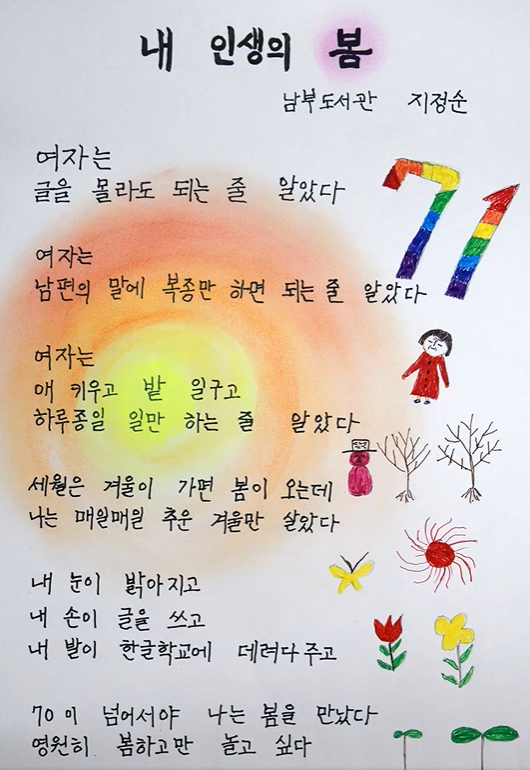 내 인생의 봄
남부도서관 지정순
여자는
글을 몰라도 되는 줄 알았다
71
여자는
남편의 말에 복종만 하면 되는 줄 알았다
여자는
애 키우고 밭 일구고
하루종일 일만 하는 줄 알았다
세월은 겨울이 가면 봄이 오는데
나는 매일매일 추운 겨울만 살았다
내 눈이 밝아지고
내 손이 글을 쓰고
내 발이 한글학교에 데려다주고
70이 넘어서야 나는 봄을 만났다
영원히 봄하고만 놀고 싶다